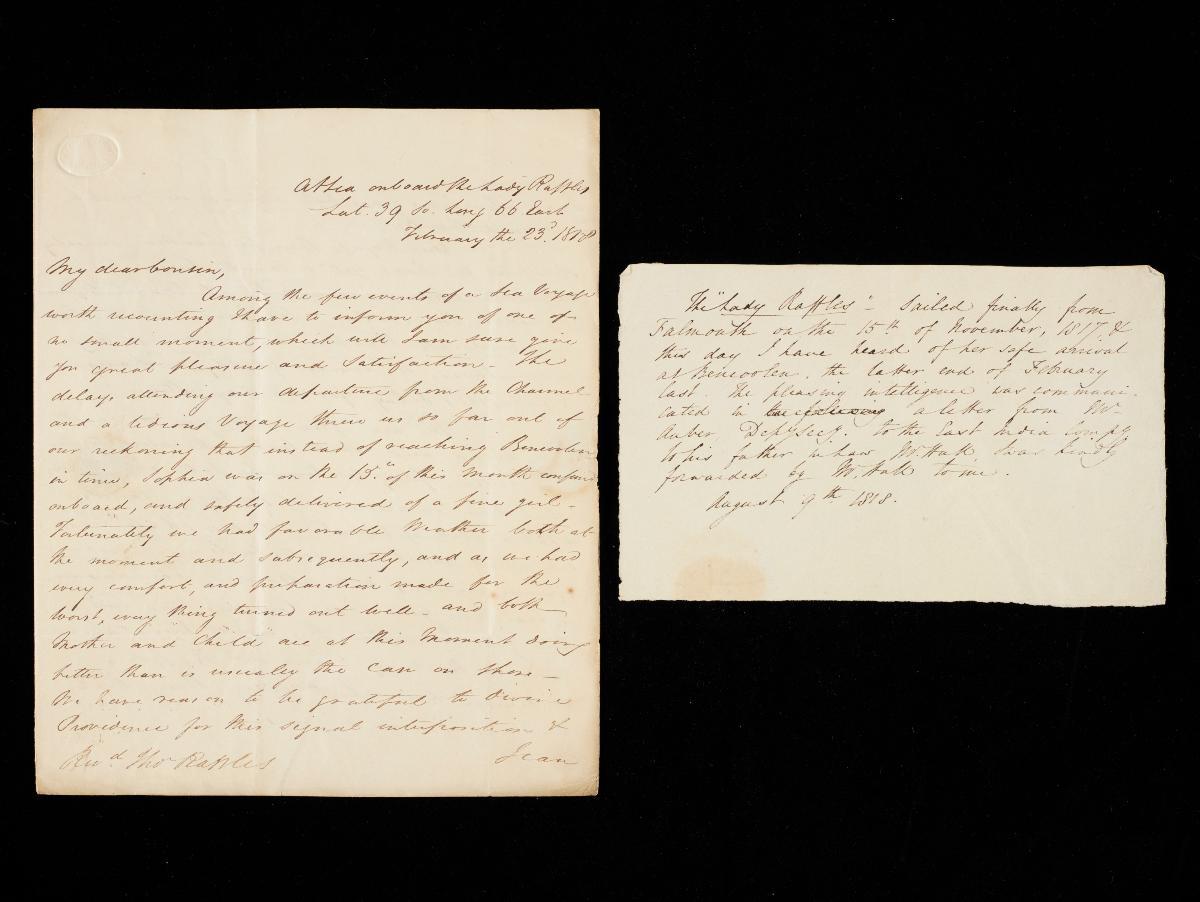 At Sea onboard the Lady Raffles
Lat. 39 So. Long 66 East
February the 23d. 1818
My dear Cousin,
Among the few events of a Sea Voyage
worth recounting I have to inform you of one of
no small moment, which will I am sure give
you great pleasure and Satisfaction - The
delay, attending our departure from the Channel
and a tedious Voyage threw us so far out of
our reckoning that instead of reaching Bencoolen
in time, Sophia was on the 15th of this month confined
onboard, and safely delivered of a fine girl -
Fortunately we had favorable Weather both at
the moment and subsequently, and as we had
every comfort, and preparation made for the
worst, every thing turned out well - and both
Mother and "Child" are at this Moment doing
better than is usually the case on Shore -
We have reason to be grateful to divine
Providence for this signal interposition &
Revd. Thos Raffles
I can
The "Lady Raffles" - Sailed finally from
Falmouth on the 15th of November, 1817, &
this day I have heard of her safe arrival
at Bencoolen, the latter end of February
last. The pleasing intelligence was communi-
cated in a letter from Mr
Auber, Dep. Secy. to the East India Compy
to his father in law Mr Hall, & was kindly
forwarded by Mr. Hall to me.
August 9th 1818.